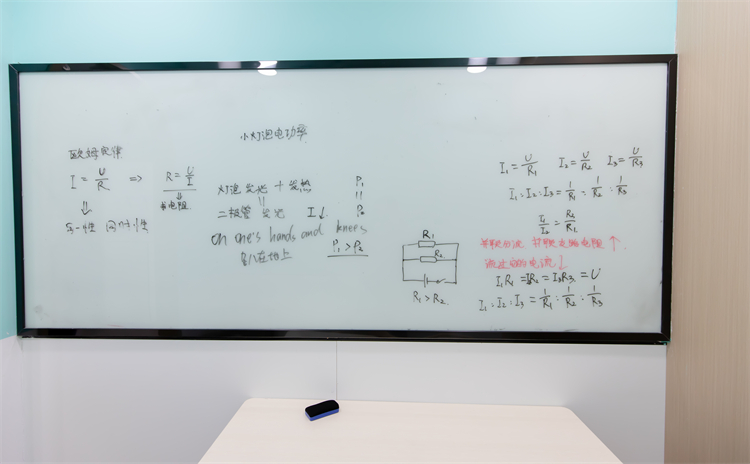 小灯泡电功率
欧姆定律
I = U/R => R = U/I
求电阻
同一性 同时性
灯泡 发光 + 发热 P₁
=
二极管 发光 I↓ P₂
on one's hands and knees
趴在地上
P₁ > P₂
R₁
R₂
R₁ > R₂
I₁ = U/R₁ I₂ = U/R₂ I₃ = U/R₃
I₁ : I₂ : I₃ = 1/R₁ : 1/R₂ : 1/R₃
I₁/I₂ = R₂/R₁
并联分流 并联 电阻 ↑
流过它的电流 ↓
I₁R₁ = I₂R₂ = I₃R₃ = U
I₁ : I₂ : I₃ = 1/R₁ : 1/R₂ : 1/R₃